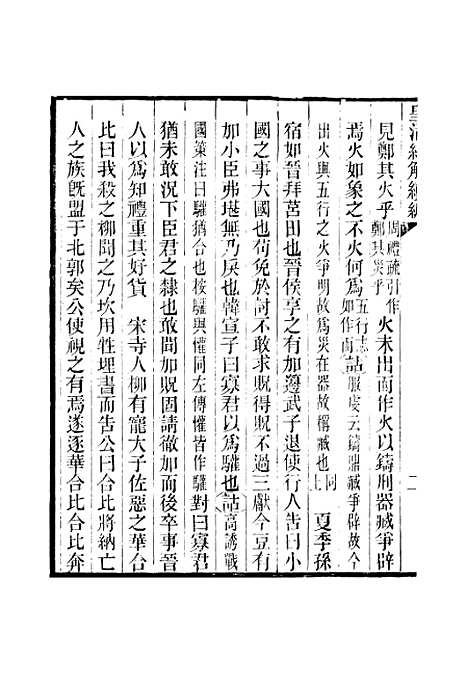 皇清經解續編
二
見鄭其火乎周禮疏引作鄭其災乎火未出而作火以鑄刑器臧爭辟
焉火如象之不火何爲五行志如作而詁服虔云鑄鼎臧爭辟故今
出火與五行之火爭明故爲災在器故稱臧也同上夏季孫
宿如晉拜莒田也晉侯享之有加籩武子退使行人告曰小
國之事大國也苟免於討不敢求貺得貺不過三獻今豆有
加小臣弗堪無乃戾也韓宣子曰寡君以爲驩也詁高誘戰
國策注曰驩猶合也按驩與懽同左傳懽皆作驩對曰寡君
猶未敢況下臣君之隸也敢聞加貺固請徹加而後卒事晉
人以爲知禮重其好貨 宋寺人柳有寵大子佐惡之華合
比曰我殺之柳聞之乃坎用牲埋書而告公曰合比將納亡
人之族旣盟于北郭矣公使視之有焉遂逐華合比合比奔